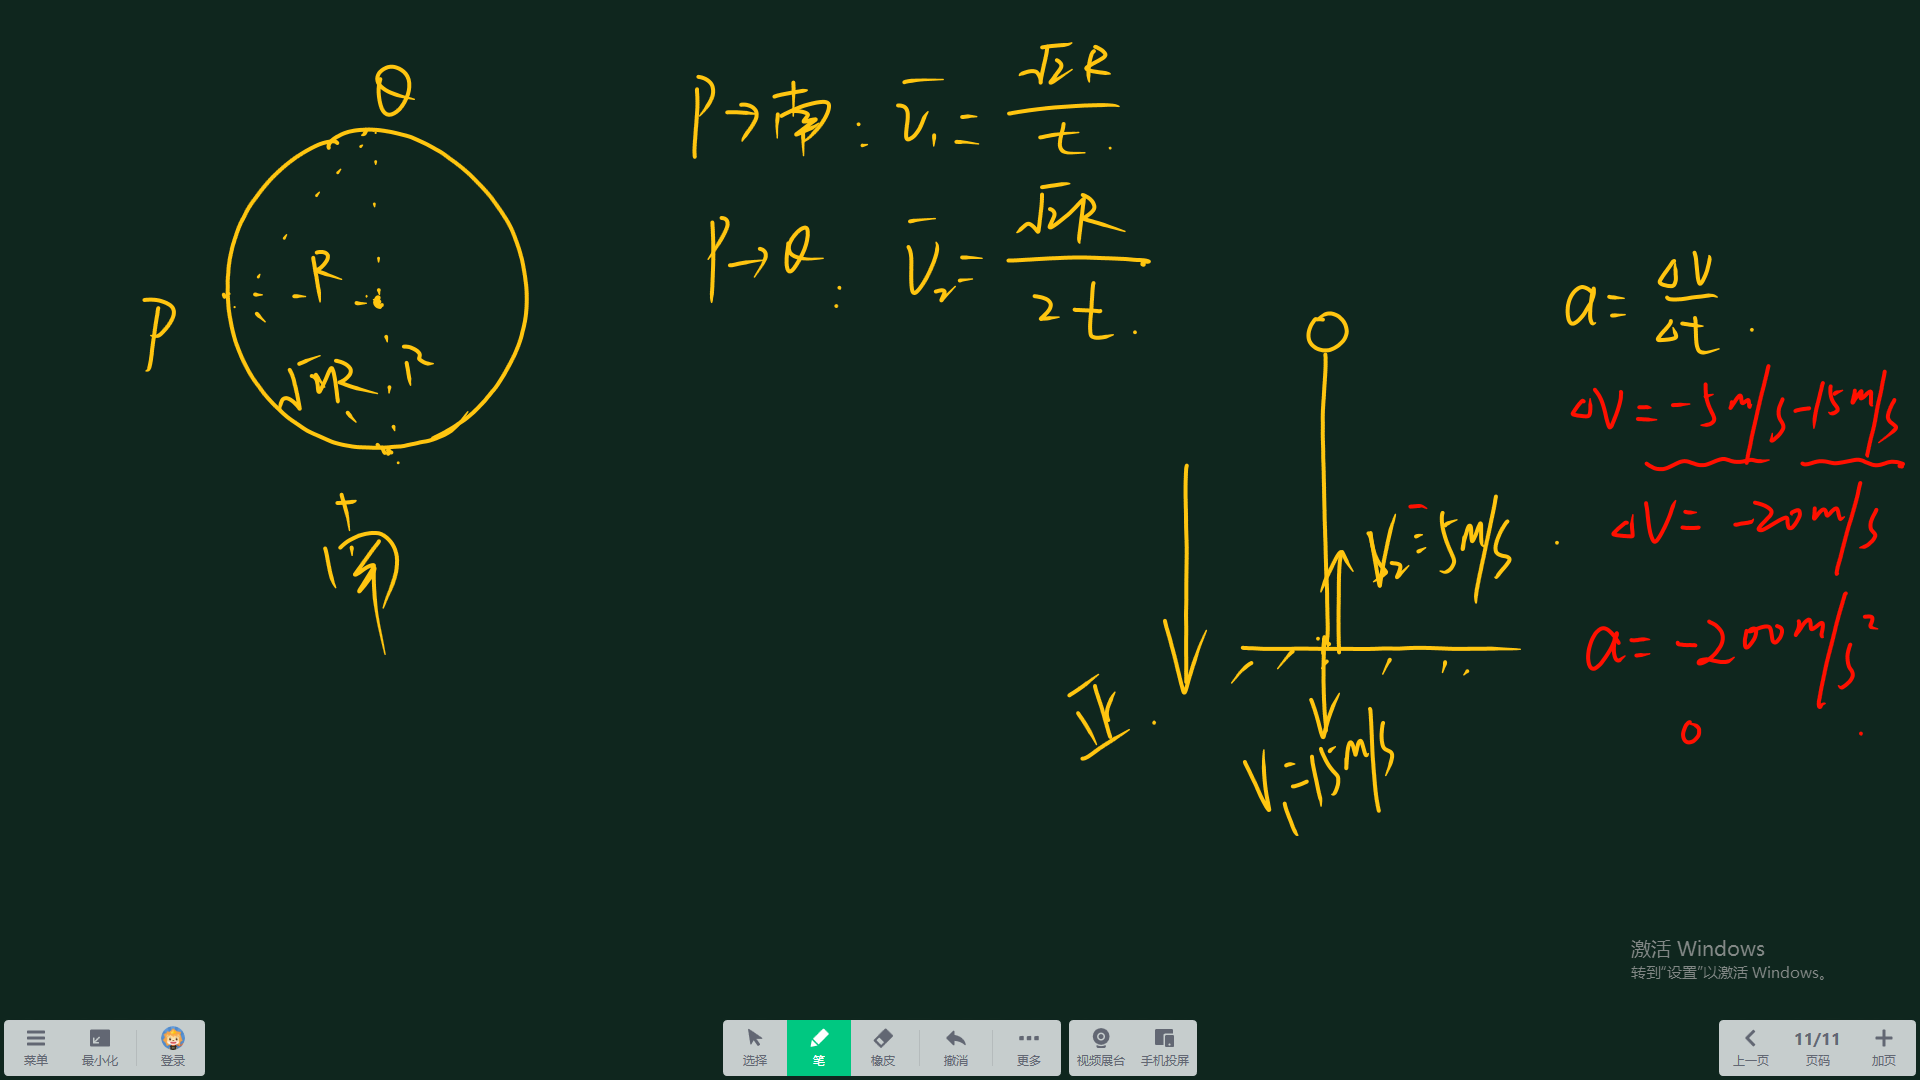 Q
P
R
√2R
R
南
P→南: v̄₁=√2R/t.
P→Q: v̄₂=√2R/2t.
正.
V₂=5m/s.
V₁=15m/s
a=ΔV/Δt.
ΔV=-5m/s-15m/s
ΔV=-20m/s
a=-200m/s²
0
激活 Windows
转到“设置”以激活 Windows。
菜单
最小化
登录
选择
笔
橡皮
撤消
更多
视频展台
手机投屏
上一页
11/11
页码
加页